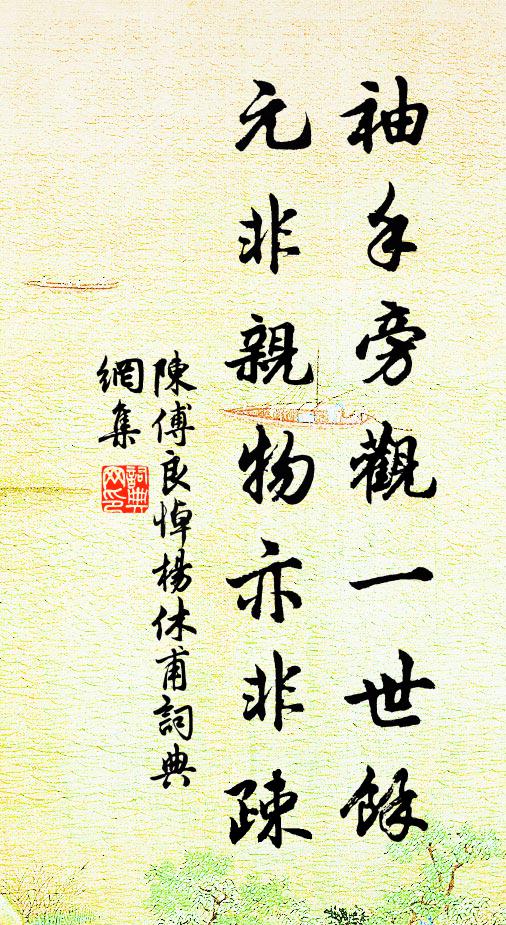 袖手旁觀一世餘
元非親物亦非疎
陳傅良悼楊休甫詞典
網集
詞典
网印